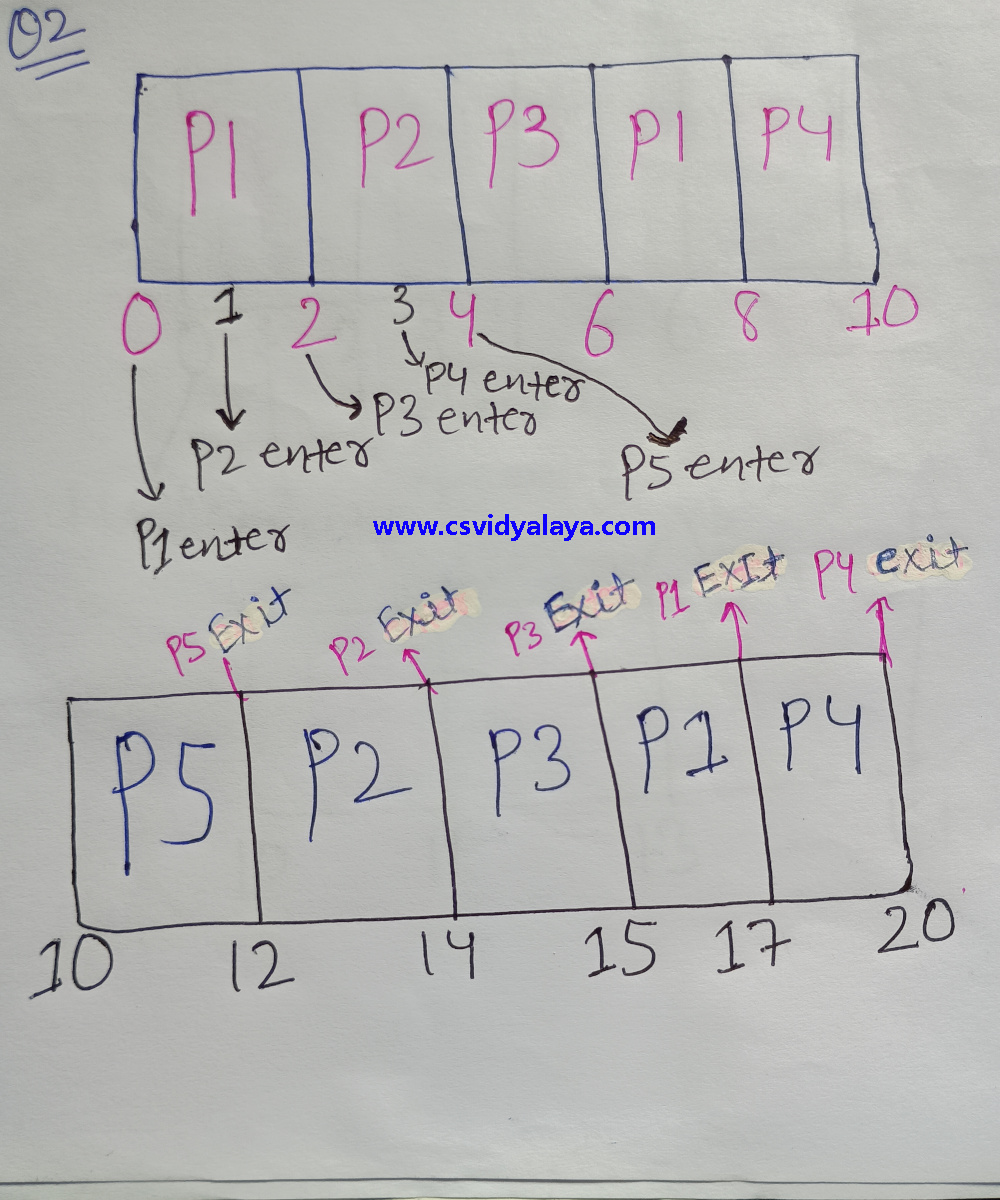 Q2
P1 P2 P3 P1 P4
0 1 2 3 4 6 8 10
P4 enter
P3 enter
P2 enter
P5 enter
www.csvidyalaya.com
P1 enter
P5 Exit P2 Exit P3 Exit P1 ExIt P4 exit
P5 P2 P3 P1 P4
10 12 14 15 17 20